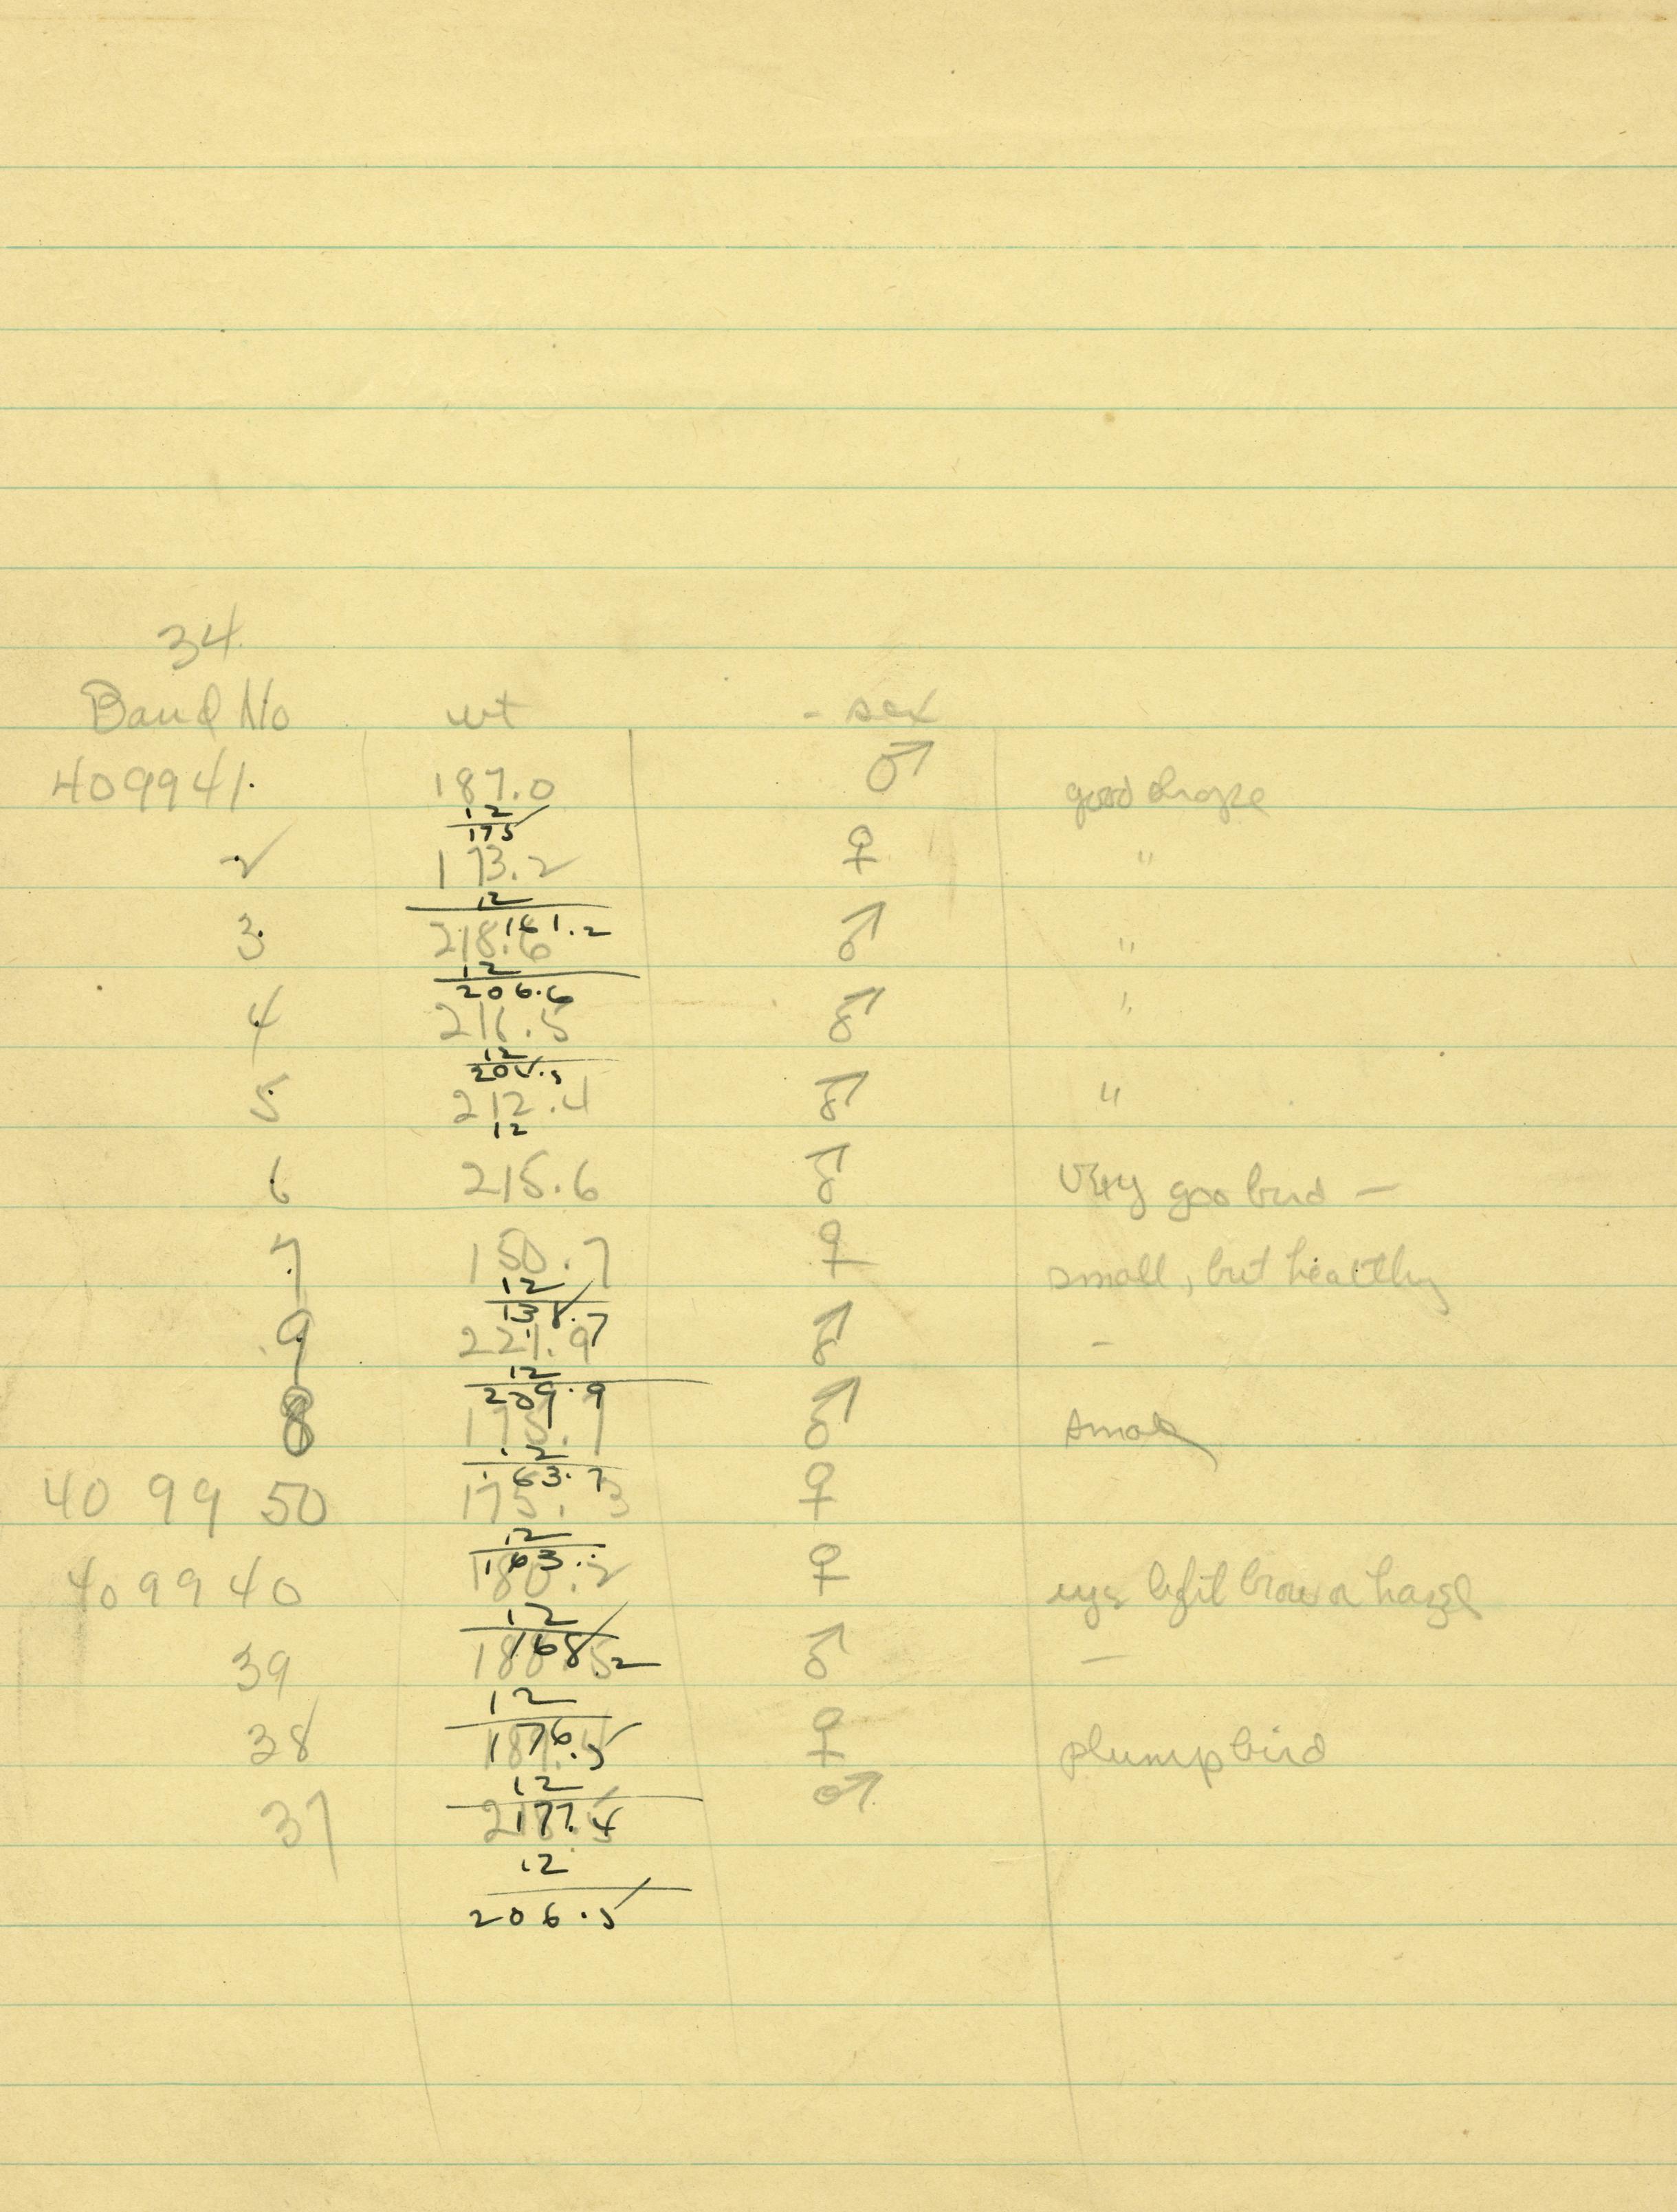 34
Band No wt - sex
409941. 187.0 ♂ good shape
12
175
2 173.2 ♀ "
12
161.2
3 218.6 ♂ "
12
206.6
4 216.5 ♂ "
12
204.5
5 212.4 ♂ "
12
6 215.6 ♂ Very goo bird —
7 150.7 ♀ small, but healthy
12
138.7
9 221.9 ♂ -
12
209.9
8 175.7 ♂ small
12
163.7
40 99 50 175.3 ♀
12
163..
409940 180.2 ♀ eyes light brown hazel
12
168.2
39 188.5 ♂ —
12
176.5
38 189.4 ♀ plump bird
12
177.4
37 218.5 ♂
12
206.5